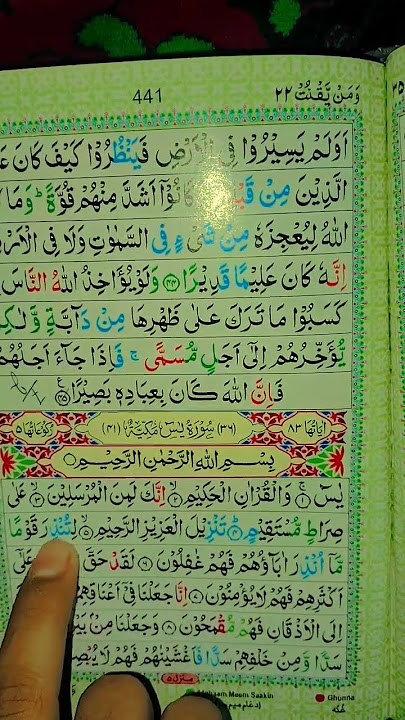 وَمَنْ يَّقْنُتْ ٢٢
441
اَوَلَمْ يَسِيْرُوْا فِى الْاَرْضِ فَيَنْظُرُوْا كَيْفَ كَانَ
الَّذِيْنَ مِنْ قَبْلِهِمْ وَكَانُوْٓا اَشَدَّ مِنْهُمْ قُوَّةً ؕ وَمَا
اللّٰهُ لِيُعْجِزَهٗ مِنْ شَىْءٍ فِى السَّمٰوٰتِ وَلَا فِى الْاَرْ
اِنَّهٗ كَانَ عَلِيْمًا قَدِيْرًا ﴿۴۴﴾ وَلَوْ يُؤَاخِذُ اللّٰهُ النَّاسَ
كَسَبُوْا مَا تَرَكَ عَلٰى ظَهْرِهَا مِنْ دَآبَّةٍ وَّلٰكِ
يُّؤَخِّرُهُمْ اِلٰٓى اَجَلٍ مُّسَمًّى ۚ فَاِذَا جَآءَ اَجَلُهُمْ
فَاِنَّ اللّٰهَ كَانَ بِعِبَادِهٖ بَصِيْرًا ﴿۴۵﴾
اٰيَاتُهَا ٨٣ (٣٦) سُوْرَةُ يٰسٓ مَكِّيَّةٌ (٤١) رُكُوْعَاتُهَا ٥
بِسْمِ اللّٰهِ الرَّحْمٰنِ الرَّحِيْمِ
يٰسٓ ﴿۱﴾ وَالْقُرْاٰنِ الْحَكِيْمِ ﴿۲﴾ اِنَّكَ لَمِنَ الْمُرْسَلِيْنَ ﴿۳﴾ عَلٰى
صِرَاطٍ مُّسْتَقِيْمٍ ﴿۴﴾ تَنْزِيْلَ الْعَزِيْزِ الرَّحِيْمِ ﴿۵﴾ لِتُنْذِرَ قَوْمًا
مَّآ اُنْذِرَ اٰبَآؤُهُمْ فَهُمْ غٰفِلُوْنَ ﴿۶﴾ لَقَدْ حَقَّ عَلٰٓى
اَكْثَرِهِمْ فَهُمْ لَا يُؤْمِنُوْنَ ﴿۷﴾ اِنَّا جَعَلْنَا فِىْٓ اَعْنَاقِهِمْ
اِلَى الْاَذْقَانِ فَهُمْ مُّقْمَحُوْنَ ﴿۸﴾ وَجَعَلْنَا مِنْۢ بَيْ
سَدًّا وَّمِنْ خَلْفِهِمْ سَدًّا فَاَغْشَيْنٰهُمْ فَهُمْ لَا يُبْصِ
منزل ٥
Meem Saakin
Ghunna
غُنَّه